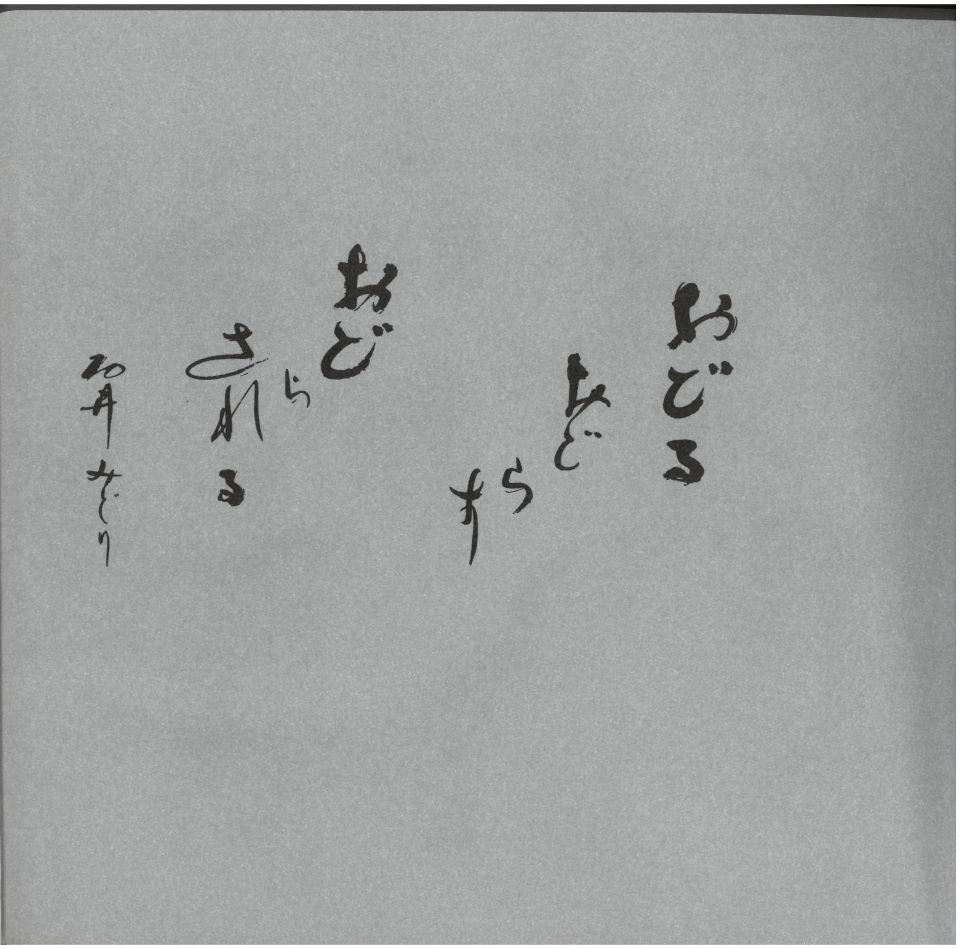 おどる
おど
らす
おどら
される
石井みどり